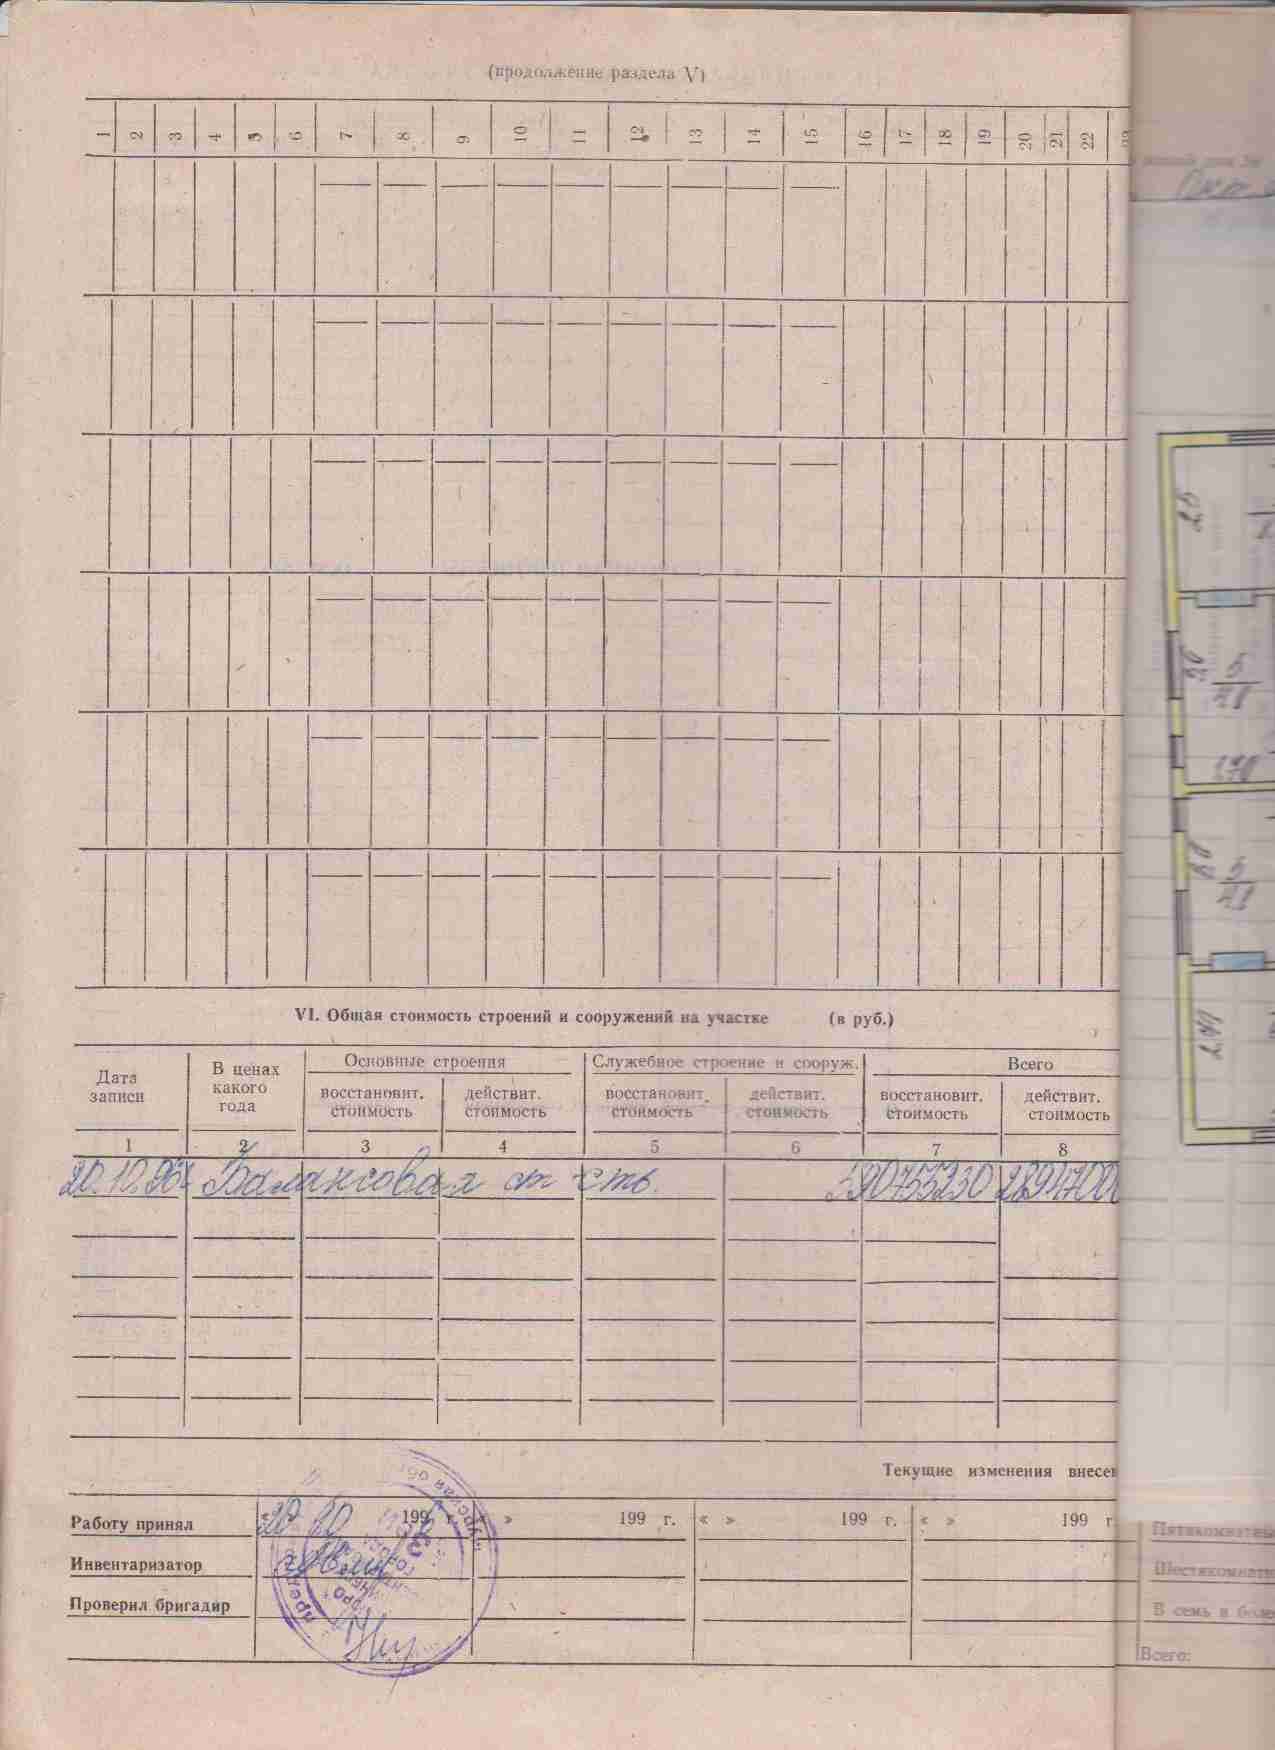 (продолжение раздела V)
1 2 3 4 5 6 7 8 9 10 11 12 13 14 15 16 17 18 19 20 21 22
VI. Общая стоимость строений и сооружений на участке (в руб.)
Дата записи
В ценах какого года
Основные строения
Служебное строение и сооруж.
Всего
восстановит. стоимость
действит. стоимость
восстановит. стоимость
действит. стоимость
восстановит. стоимость
действит. стоимость
1 2 3 4 5 6 7 8
20.10.96г Балансовая ст-сть. 590755230 28947000
Текущие изменения внесен
Работу принял
199 г. » 199 г. « » 199 г. « » 199 г
Инвентаризатор
Проверил бригадир
Пятикомнатны
Шестикомнатн
В семь и более
Всего: